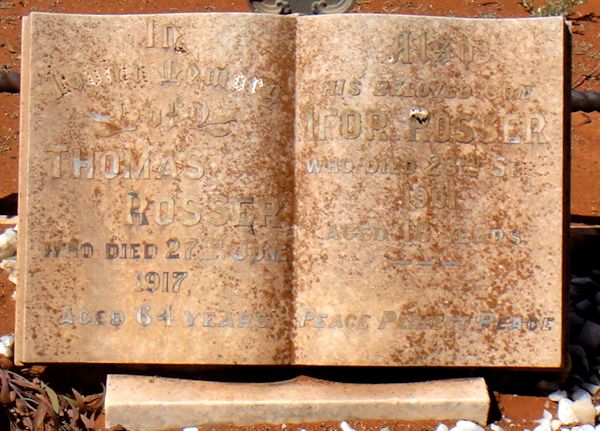 In
Loving Memory
of
THOMAS
ROSSER
WHO DIED 27TH JUNE
1917
AGED 64 YEARS
Also
HIS BELOVED SON
IFOR ROSSER
WHO DIED 23RD
AGED YEARS
PEACE PERFECT PEACE